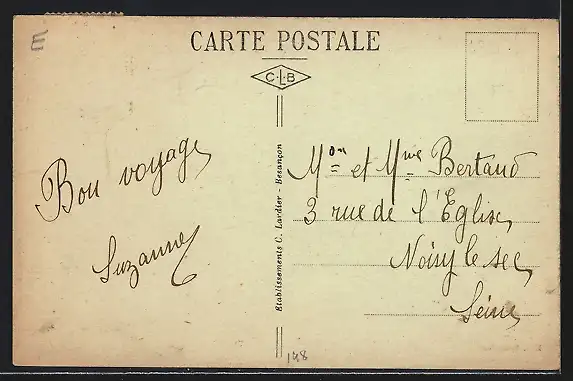 E
CARTE POSTALE
C L B
Bon voyage
Suzanne
Etablissements C. Lardier - Besançon
Mon et Mme Bertaud
3 rue de l'Eglise
Noisy le sec
Seine
148